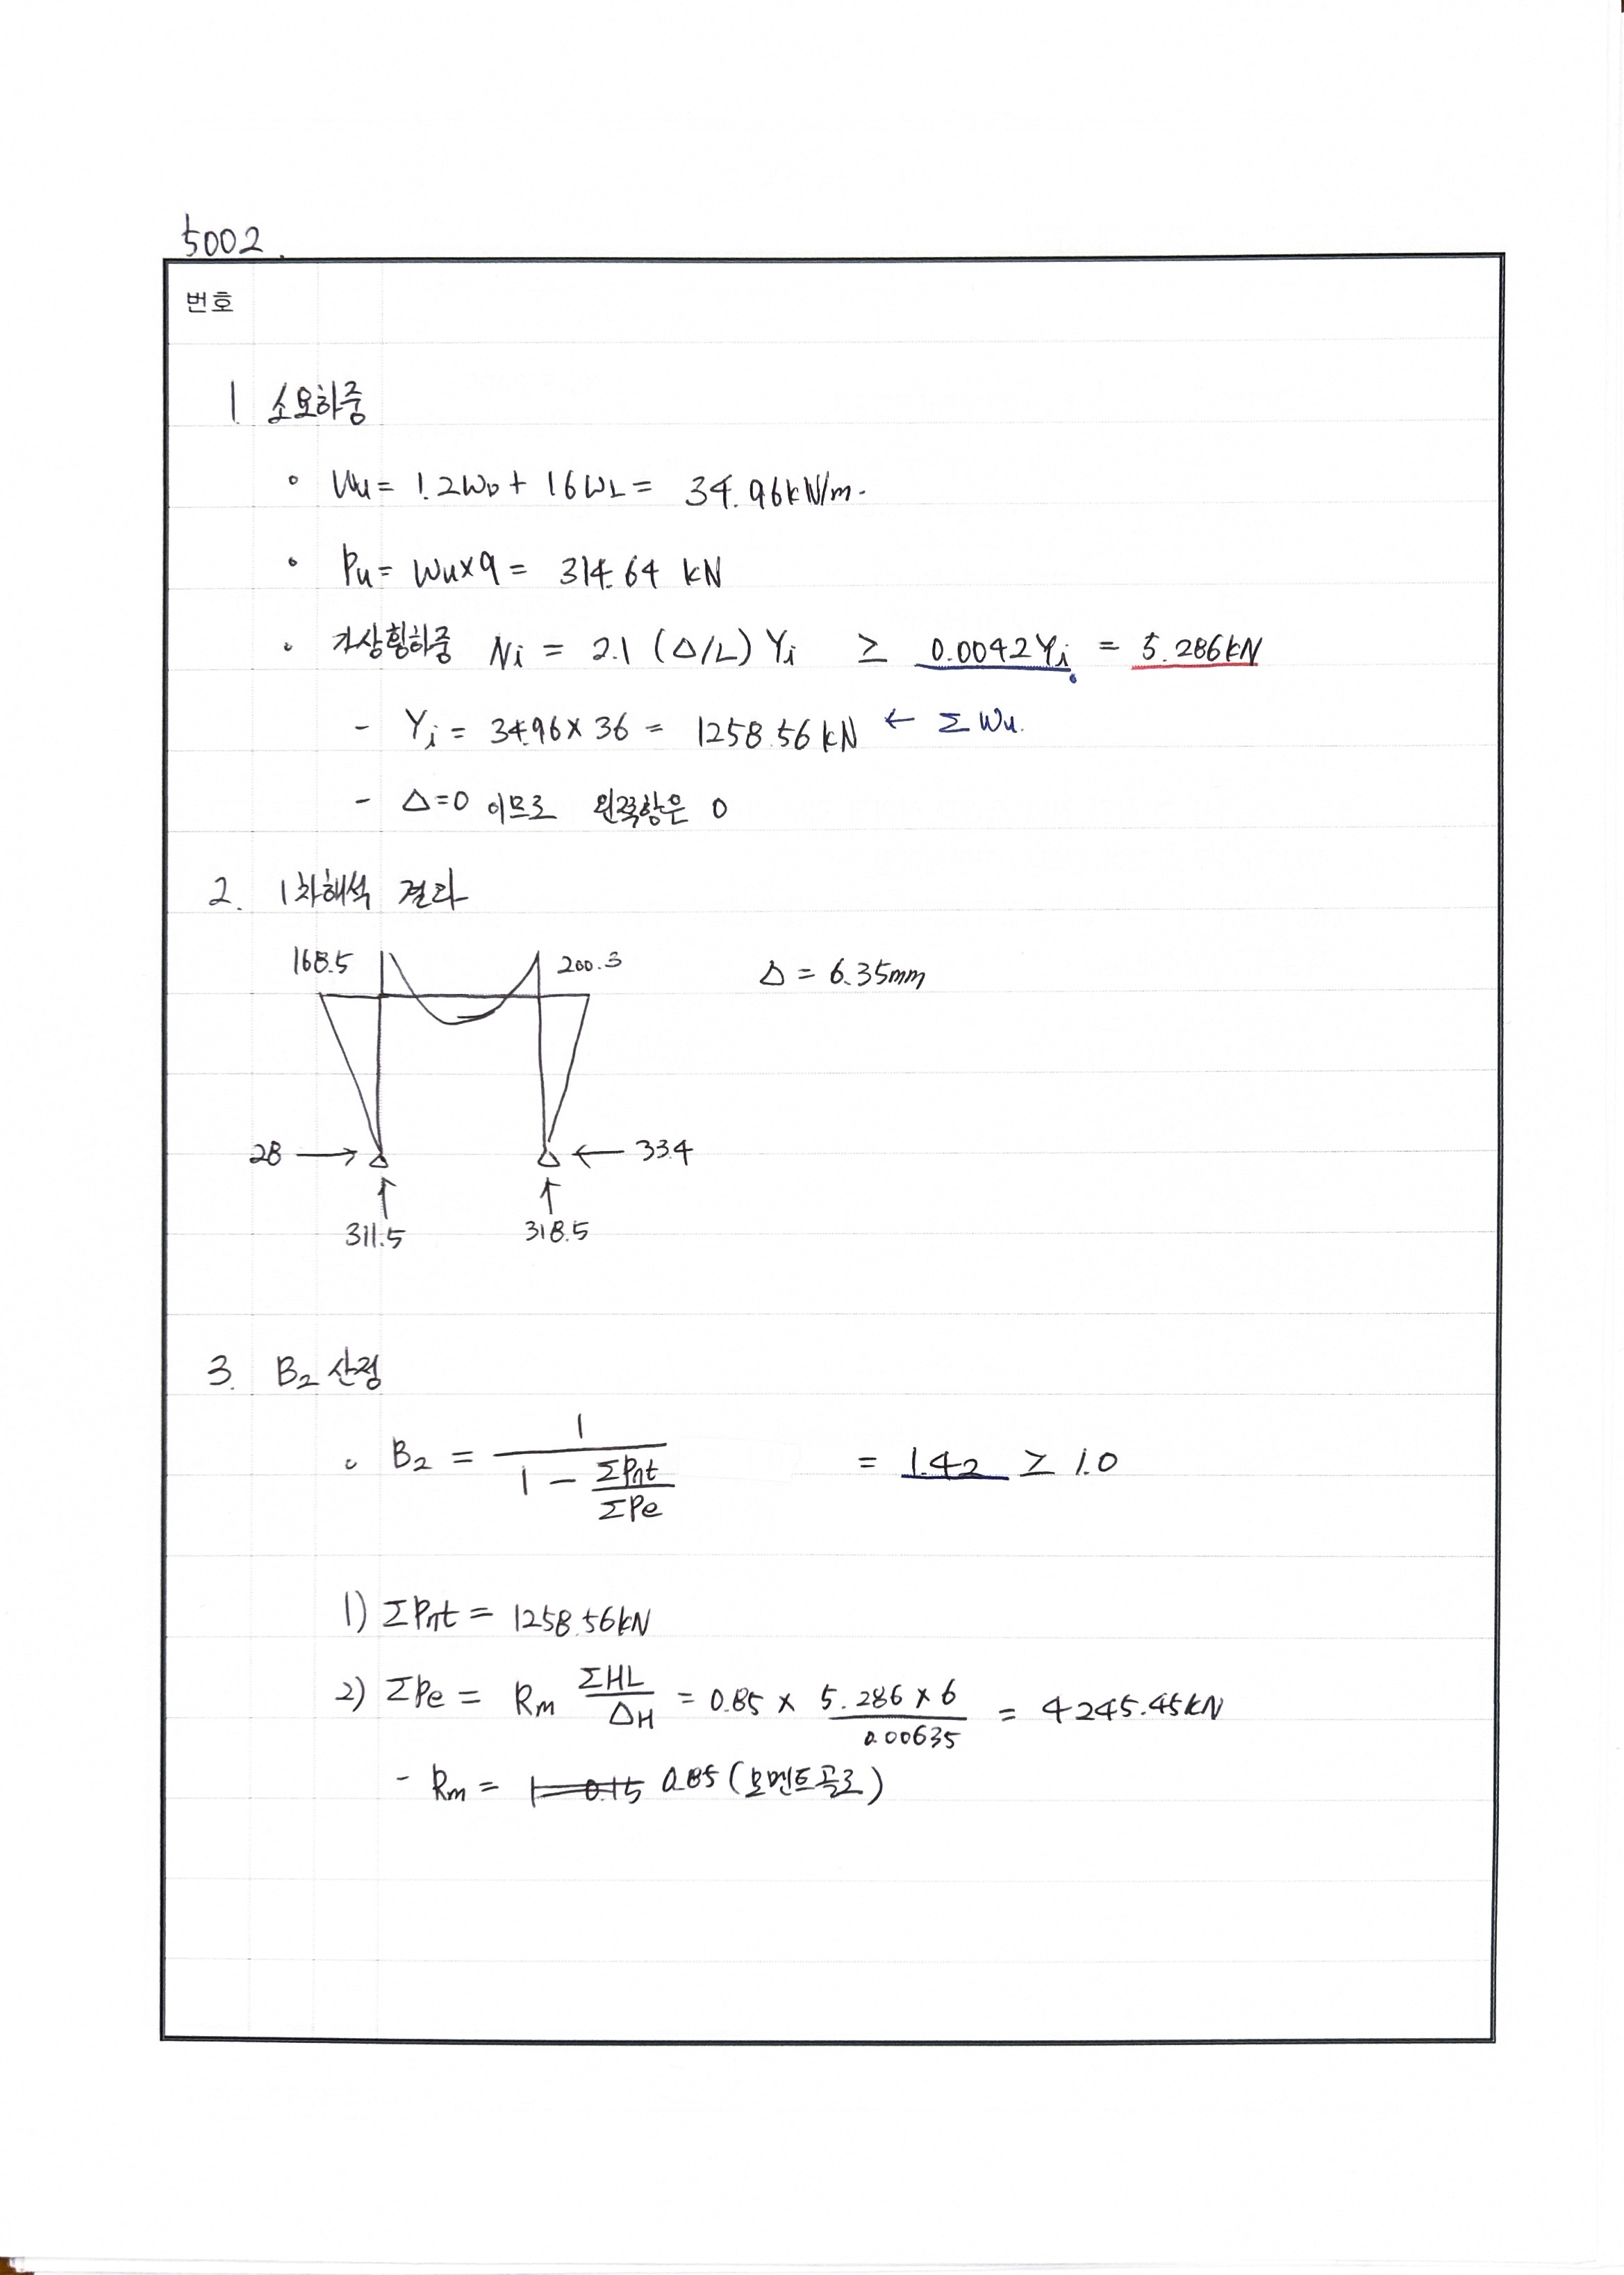 5002.
번호
1 소요하중
∘ Wu = 1.2WD + 1.6WL = 34.96kN/m.
∘ Pu = Wu×9 = 314.64 kN
∘ 가상횡하중 Ni = 2.1 (Δ/L) Yi ≥ 0.0042Yi = 5.286kN
- Yi = 34.96 × 36 = 1258.56 kN ← ΣWu.
- Δ=0 이므로 왼쪽항은 0
2. 1차해석 결과
168.5 200.3 Δ = 6.35mm
28 → ← 33.4
↑ ↑
311.5 318.5
3. B2 산정
∘ B2 = 1 / (1 - ΣPnt / ΣPe) = 1.42 ≥ 1.0
1) ΣPnt = 1258.56kN
2) ΣPe = Rm ΣHL / ΔH = 0.85 × 5.286 × 6 / 0.00635 = 4245.45kN
- Rm = 1-0.15 0.85 (모멘트골조)